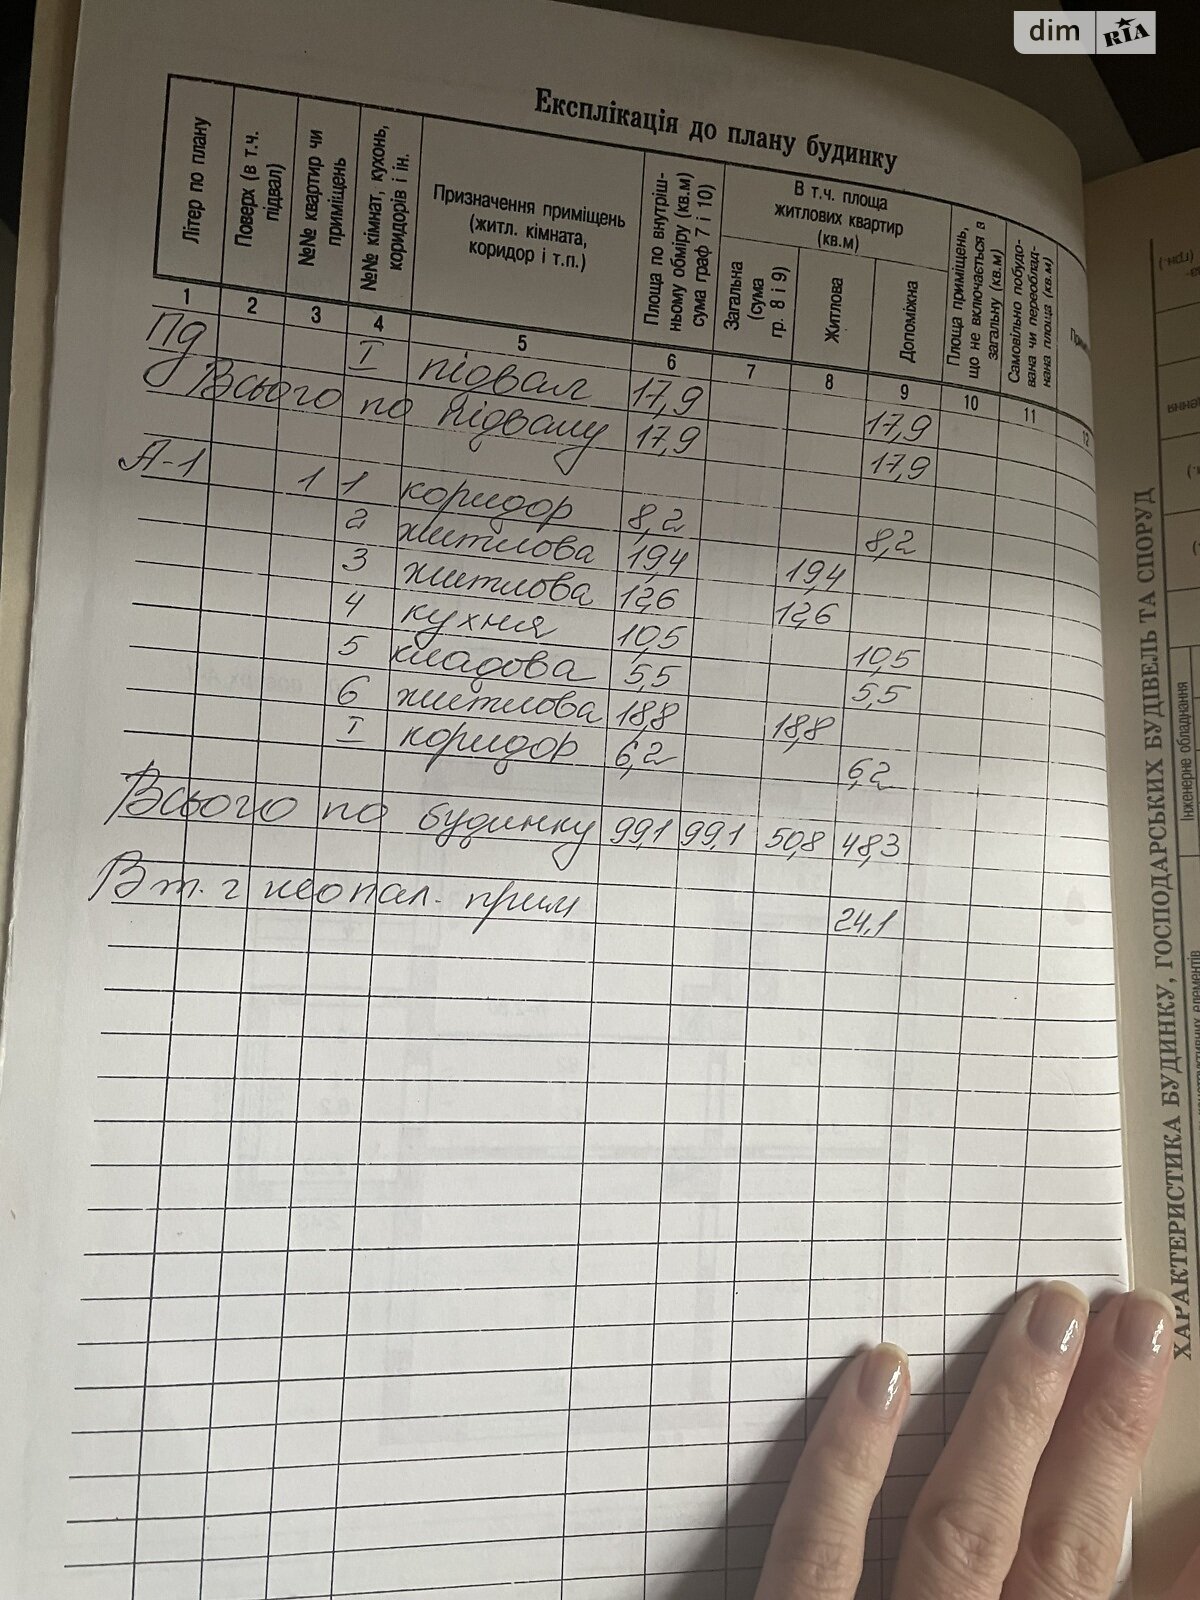 dim RIA
Експлікація до плану будинку
Літер по плану
Поверх (в т.ч. підвал)
№№ квартир чи приміщень
№№ кімнат, кухонь, коридорів і ін.
Призначення приміщень (житл. кімната, коридор і т.п.)
Площа по внутріш-ньому обміру (кв.м) сума граф 7 і 10)
В т.ч. площа житлових квартир (кв.м)
Загальна (сума гр. 8 і 9)
Житлова
Допоміжна
Площа приміщень, що не включається в загальну (кв.м)
Самовільно побудо-вана чи переоблад-нана площа (кв.м)
1 2 3 4 5 6 7 8 9 10 11 12
Пд I підвал 17,9 17,9
Всього по підвалу 17,9 17,9
А-1 1 1 коридор 8,2 8,2
2 житлова 19,4 19,4
3 житлова 12,6 12,6
4 кухня 10,5 10,5
5 кладова 5,5 5,5
6 житлова 18,8 18,8
I коридор 6,2 6,2
Всього по будинку 99,1 99,1 50,8 48,3
В т. г неопал. прим 24,1
ХАРАКТЕРИСТИКА БУДИНКУ, ГОСПОДАРСЬКИХ БУДІВЕЛЬ ТА СПОРУД
Інженерне обладнання